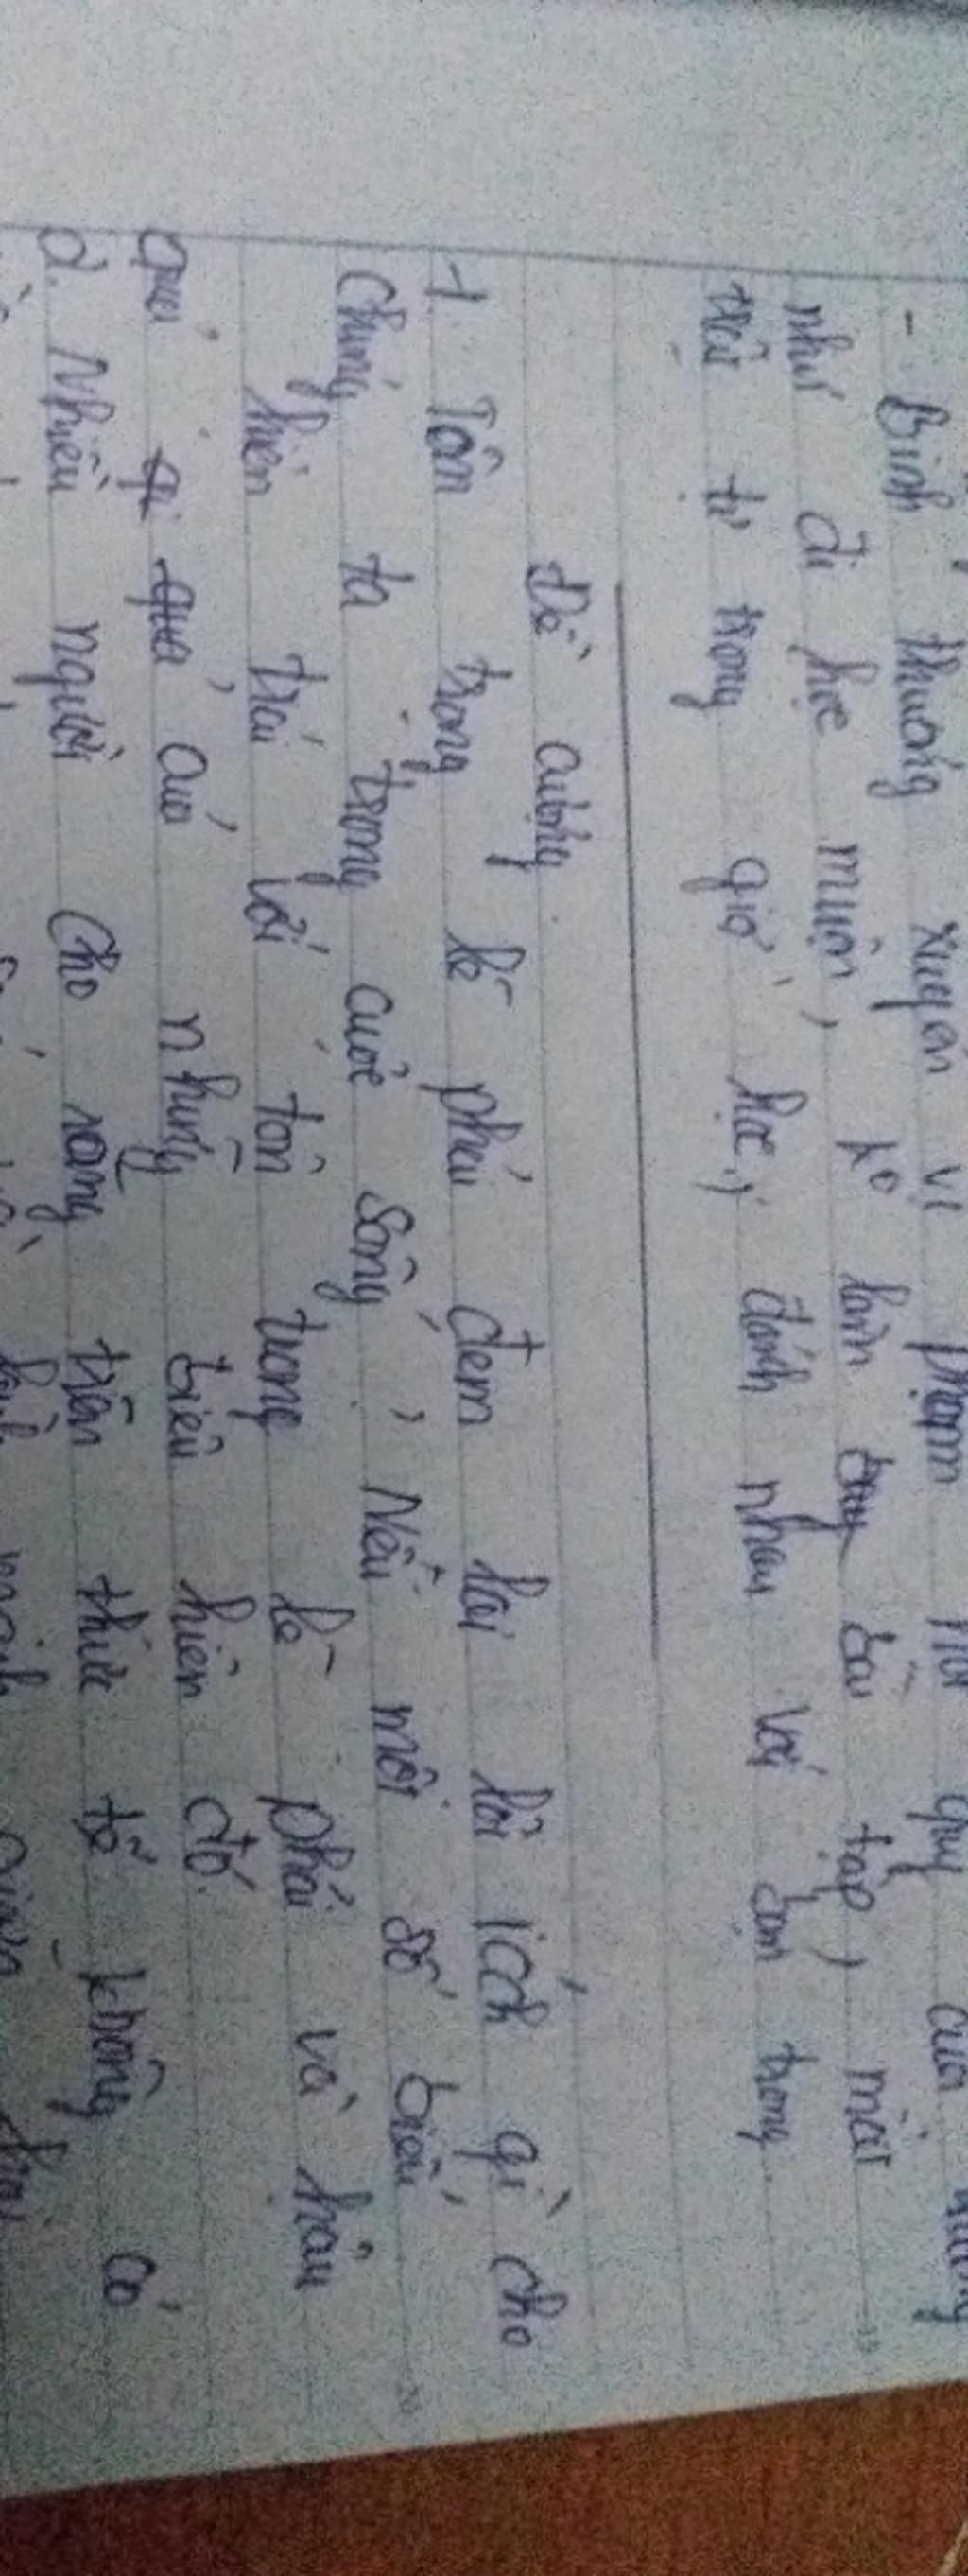 - Bình thường xuyên vi phạm nội quy của
như đi học muộn, ko làm bài tập, mất
trật tự trong giờ học, đánh nhau với bạn trong
Đề cương
1 Tôn trọng lẽ phải đem lại lợi ích gì cho
chúng ta trong cuộc sống, Nêu một số biểu
hiện trái với tôn trọng lẽ phải và hậu
quả của những biểu hiện đó.
2. Nhiều người cho rằng trên thực tế không có